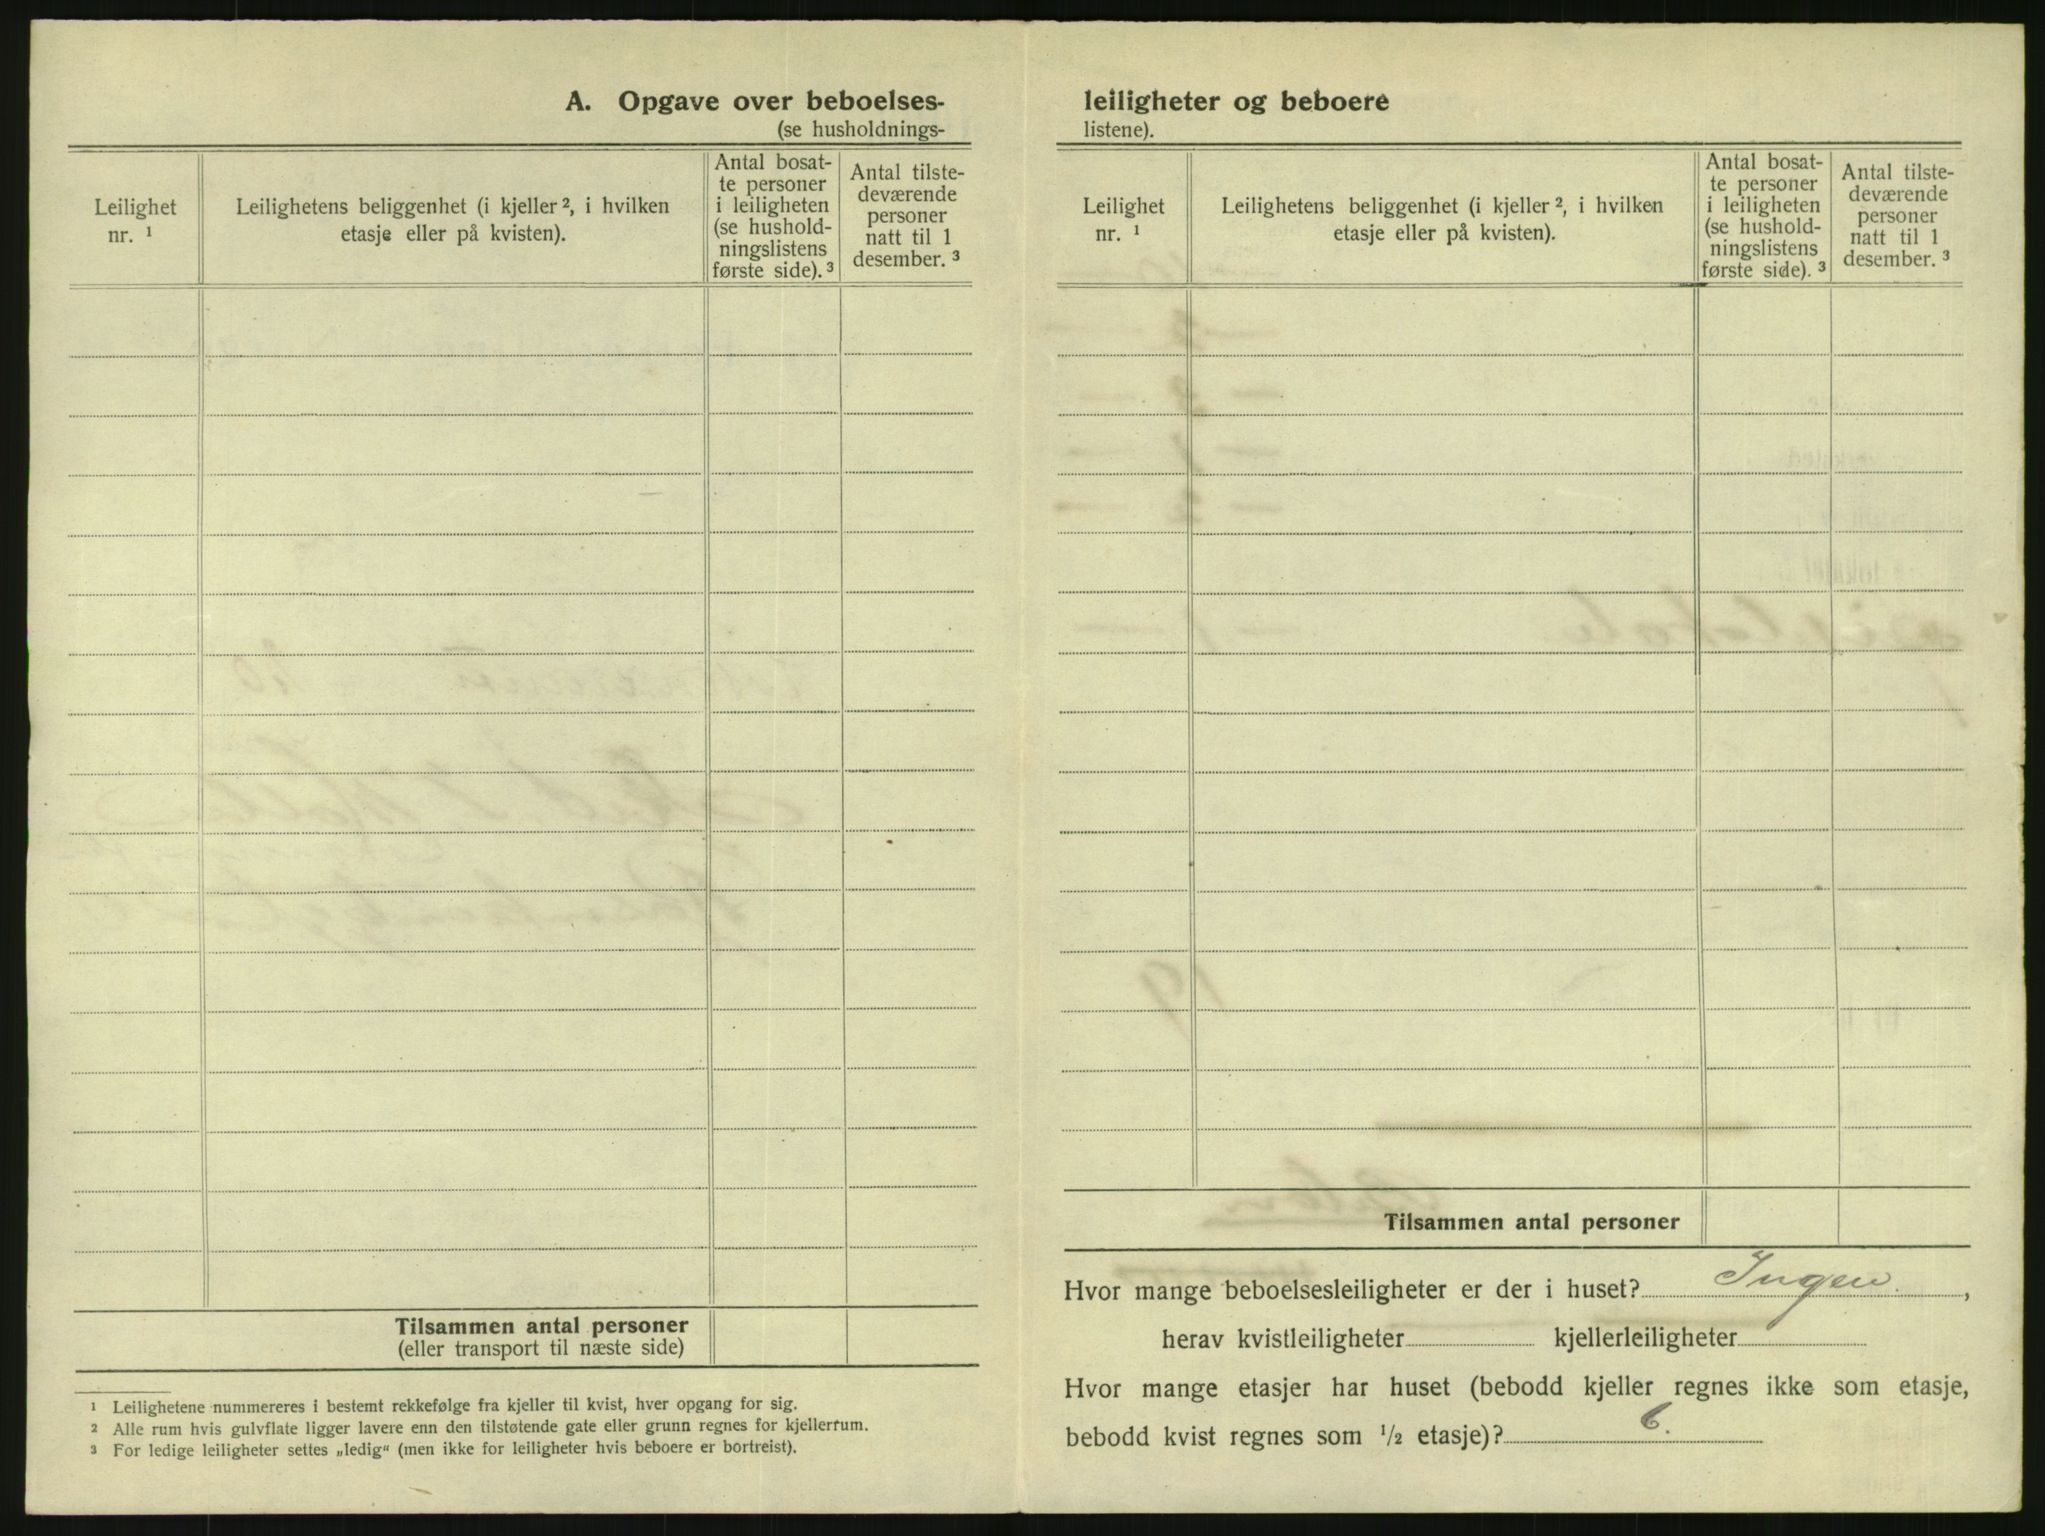 A. Opgave over beboelses-
(se husholdnings-
Leilighet
nr. 1
Leilighetens beliggenhet (i kjeller 2, i hvilken
etasje eller på kvisten).
Antal bosat-
te personer
i leiligheten
(se hushold-
ningslistens
første side). 3
Antal tilste-
deværende
personer
natt til 1
desember. 3
Tilsammen antal personer
(eller transport til næste side)
1 Leilighetene nummereres i bestemt rekkefølge fra kjeller til kvist, hver opgang for sig.
2 Alle rum hvis gulvflate ligger lavere enn den tilstøtende gate eller grunn regnes for kjellerrum.
3 For ledige leiligheter settes „ledig“ (men ikke for leiligheter hvis beboere er bortreist).
leiligheter og beboere
listene).
Leilighet
nr. 1
Leilighetens beliggenhet (i kjeller 2, i hvilken
etasje eller på kvisten).
Antal bosat-
te personer
i leiligheten
(se hushold-
ningslistens
første side). 3
Antal tilste-
deværende
personer
natt til 1
desember. 3
Tilsammen antal personer
Hvor mange beboelsesleiligheter er der i huset? Ingen.,
herav kvistleiligheter kjellerleiligheter
Hvor mange etasjer har huset (bebodd kjeller regnes ikke som etasje,
bebodd kvist regnes som 1/2 etasje)? 6.